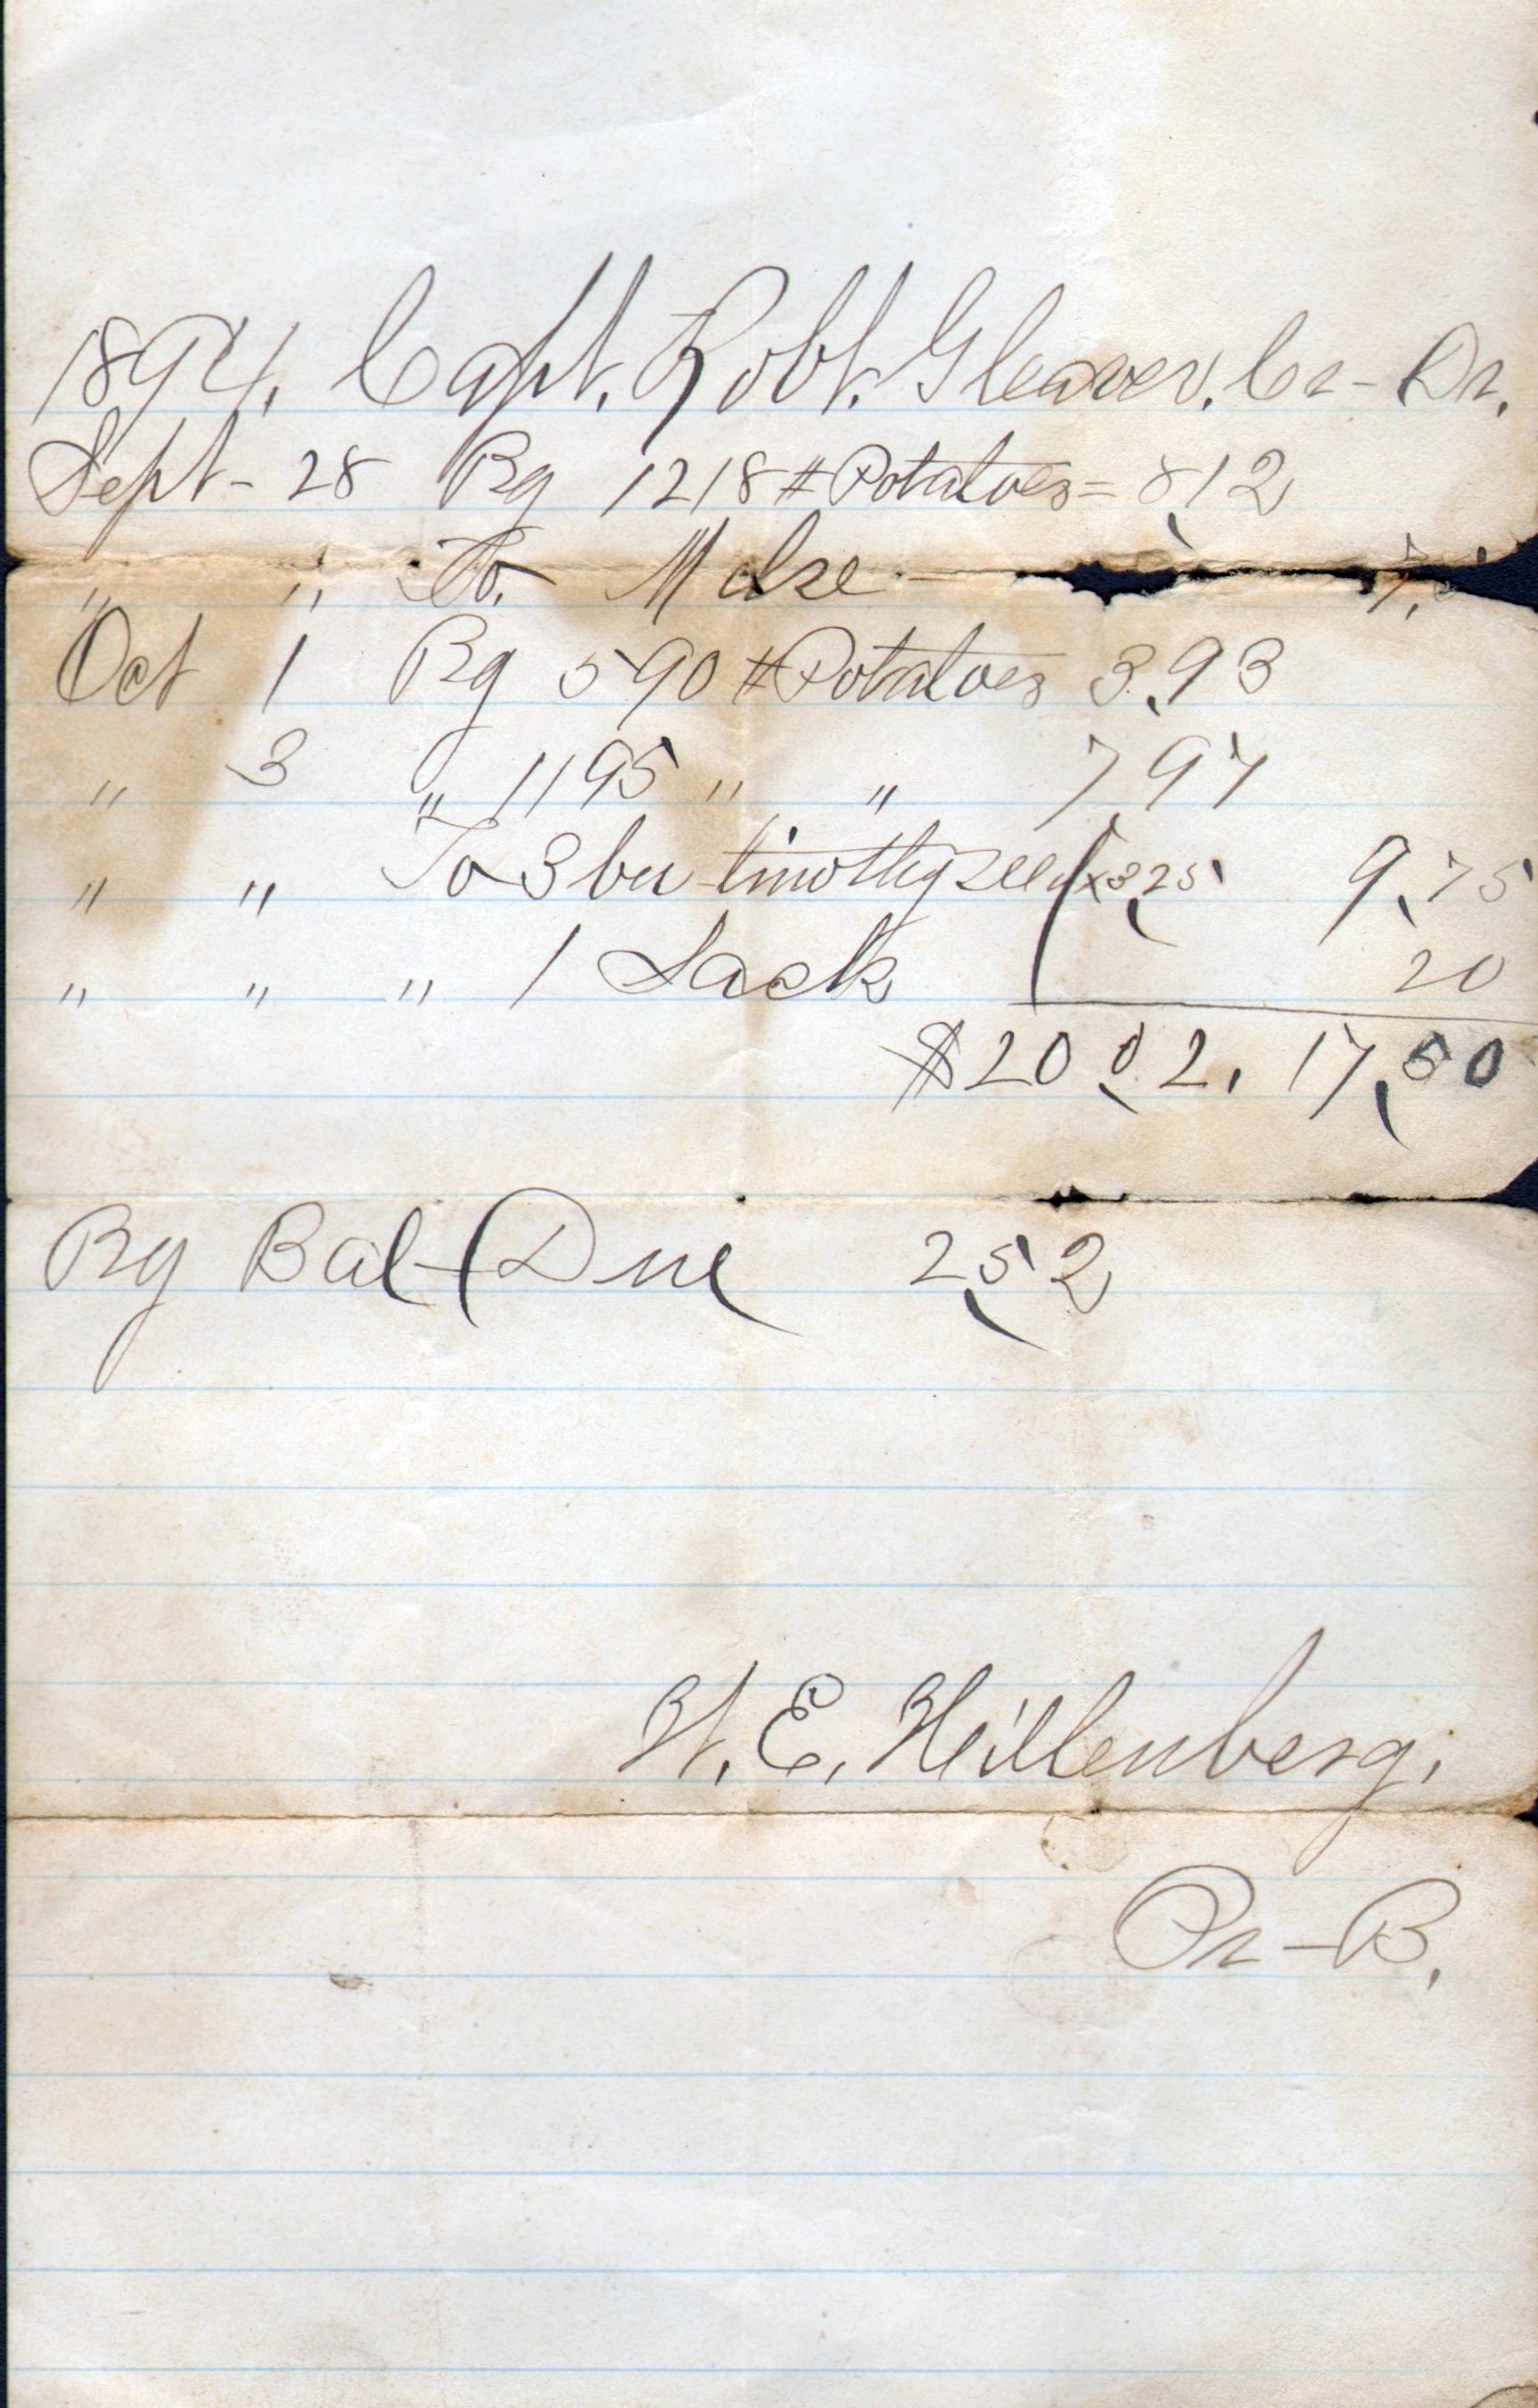 1894. Capt. Robt. Gleaver. Cr - Dr.
Sept - 28 By 1218 # Potatoes = 8.12
" " To. Mdse - 7.
Oct 1 By 590 # Potatoes 3.93
" 3 " 1195 " " 7 97
" " To 3 bu timothy seed x 3.25 9.75
" " " 1 Sack 20
$20.02. 17.50
By Bal - Due 2.52
W. E. Hillenberg.
Pr - B.